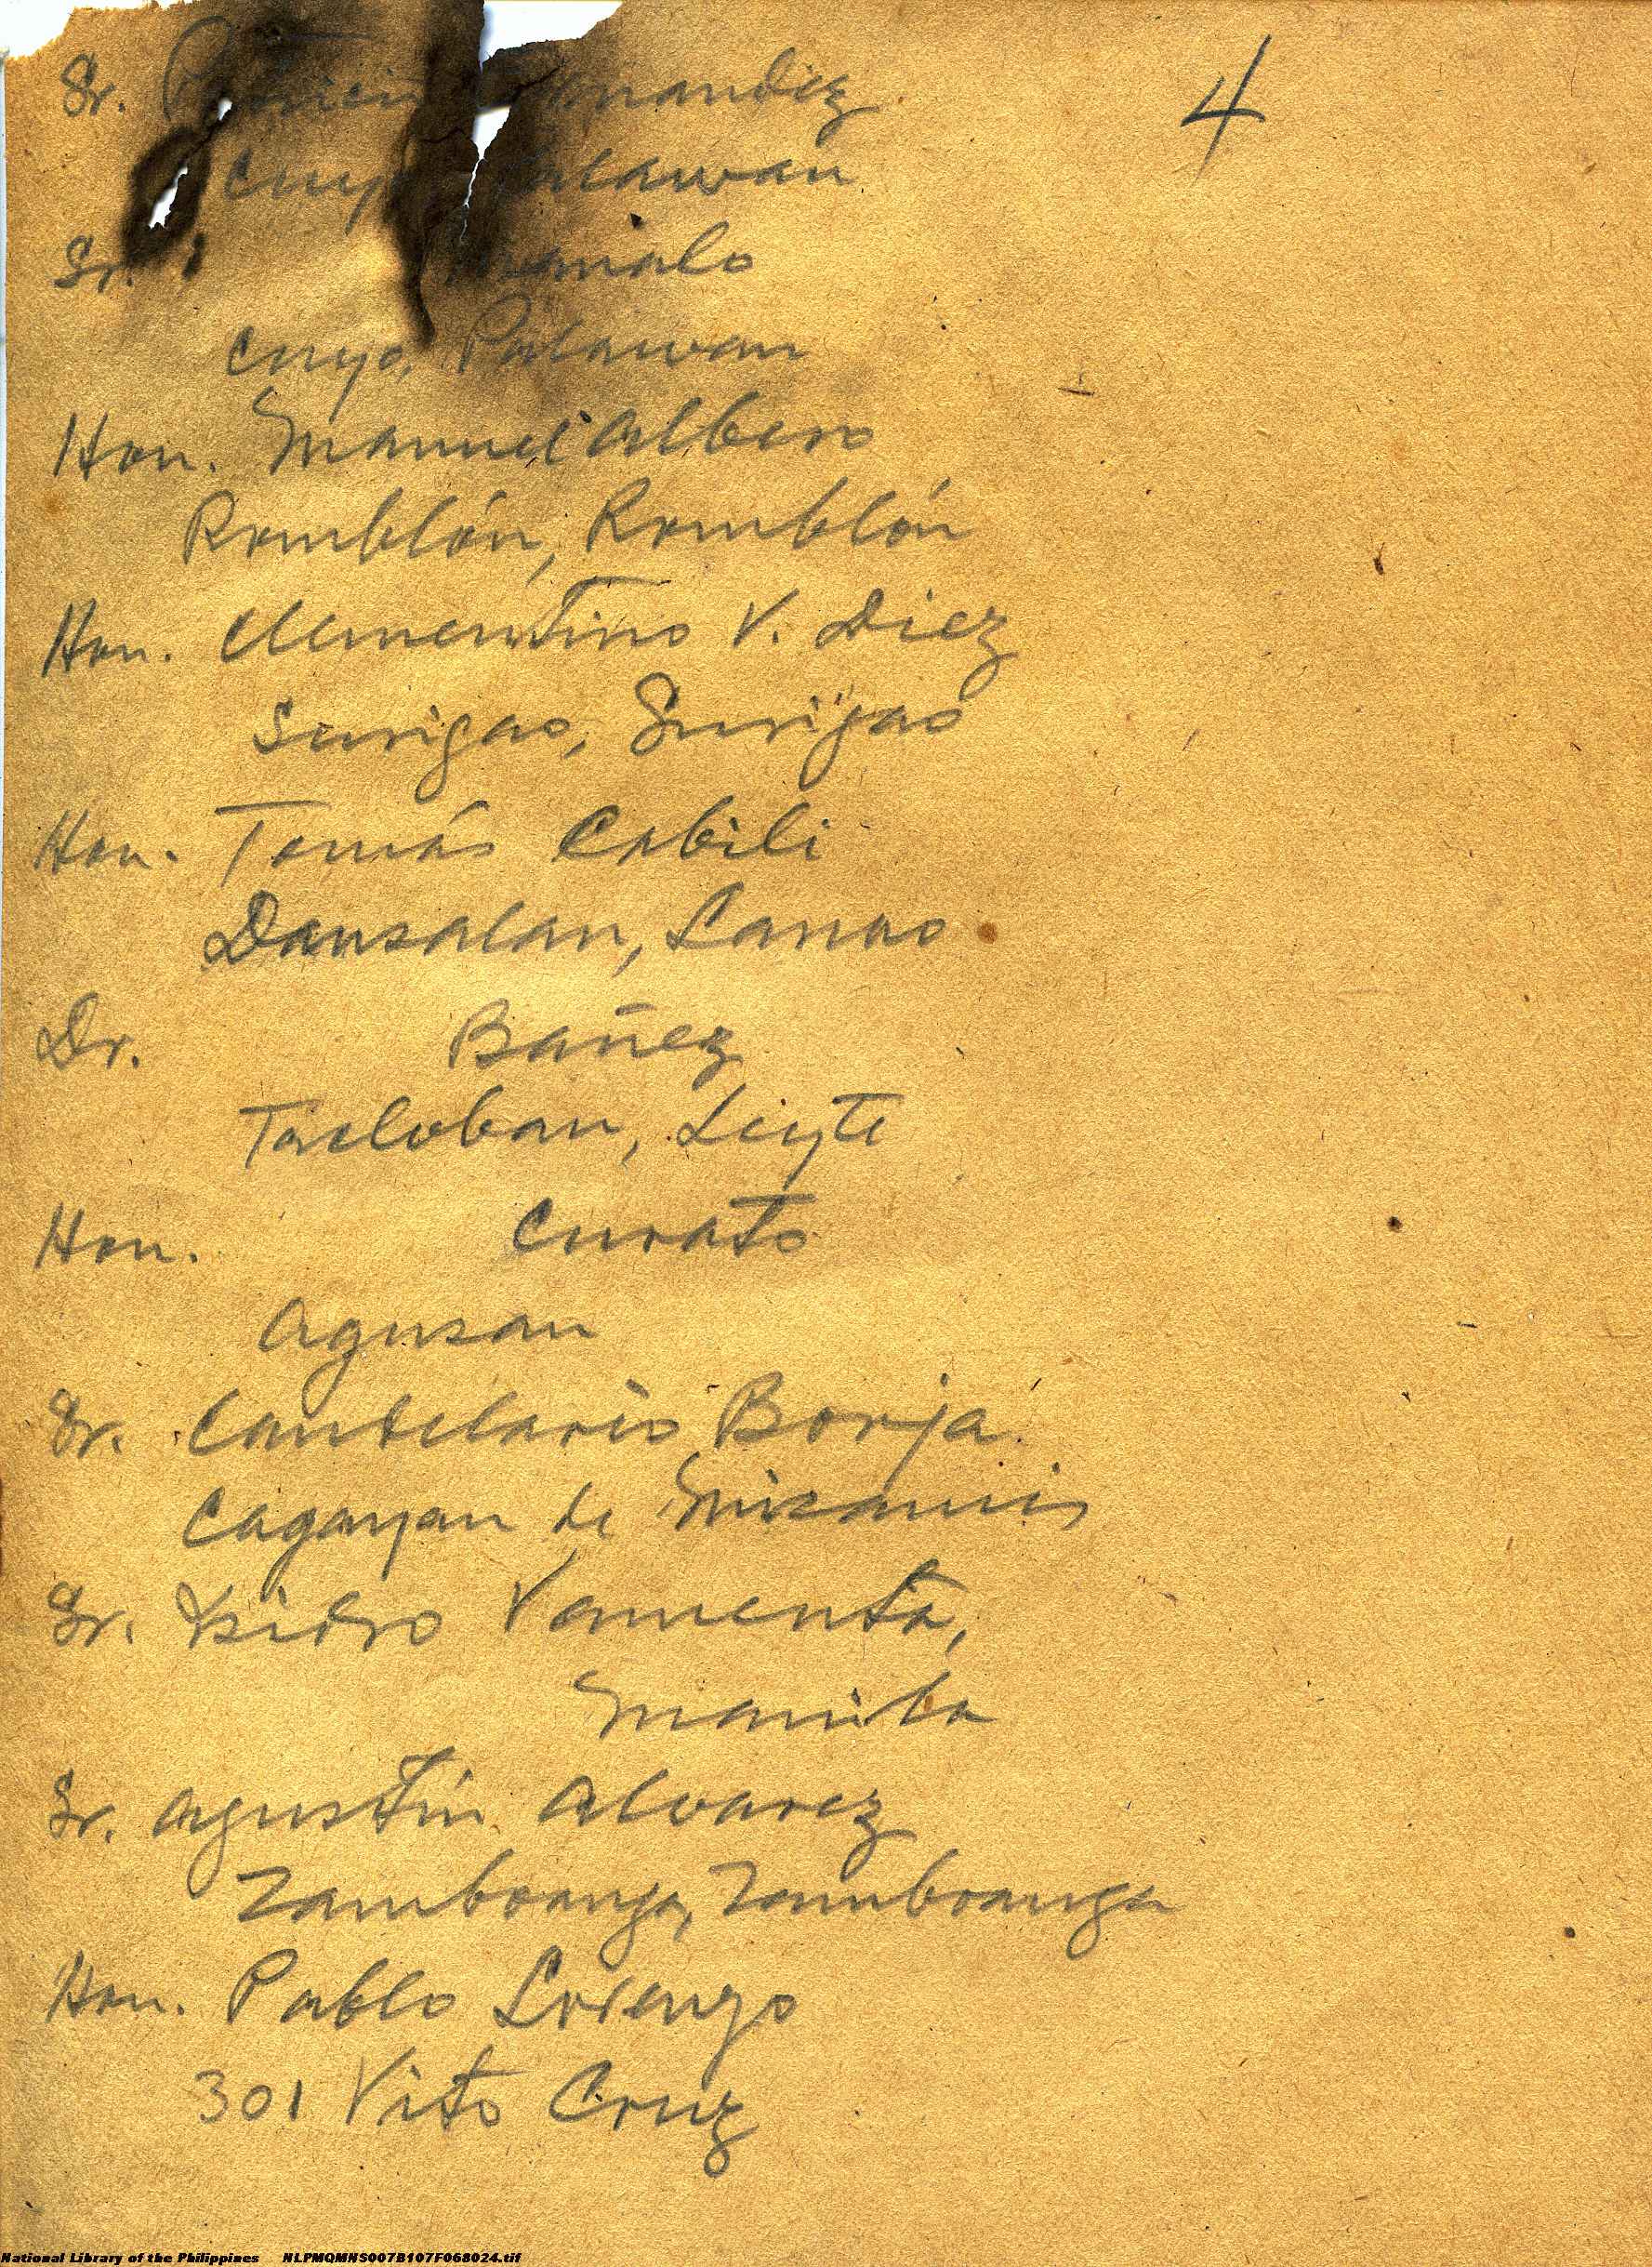 4
Sr. Patricio Fernandez
Cuyo, Palawan
Sr.
Cuyo, Palawan
Hon. Manuel Albero
Romblón, Romblón
Hon. Clementino V. Diez
Surigao, Surigao
Hon. Tomás Cabili
Dansalan, Lanao
Dr. Bañez
Tacloban, Leyte
Hon. Curato
Agusan
Sr. Candelario Borja
Cagayan de Misamis
Sr. Ysidro Vamenta,
Manila
Sr. Agustín Alvarez
Zamboanga, Zamboanga
Hon. Pablo Lorenzo
301 Vito Cruz
National Library of the Philippines NLPMQMNS007B107F068024.tif